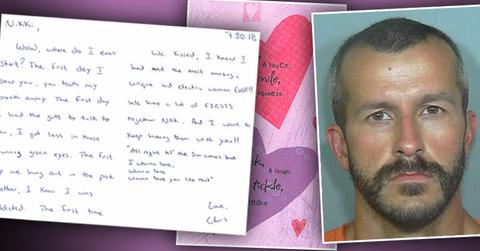 Nikki,
7.30.18
Wow, where do I even
start? The first day I
saw you, you took my
breath away. The first day
I had the guts to talk to
you, I got lost in those
stunning green eyes. The first
day we hung out in the park
together, I knew I was
addicted. The first time
We kissed, I knew I
had met the most amazing,
unique and electric woman EVER!!
We have a lot of FIRSTS
together Nikki. And, I want to
keep having them with you!!
"All night til' the Sun comes but
I wanna love,
wanna love
Wanna love you like that"
Love,
Chris
A touch,
smile,
squeeze.
A laugh,
tickle,